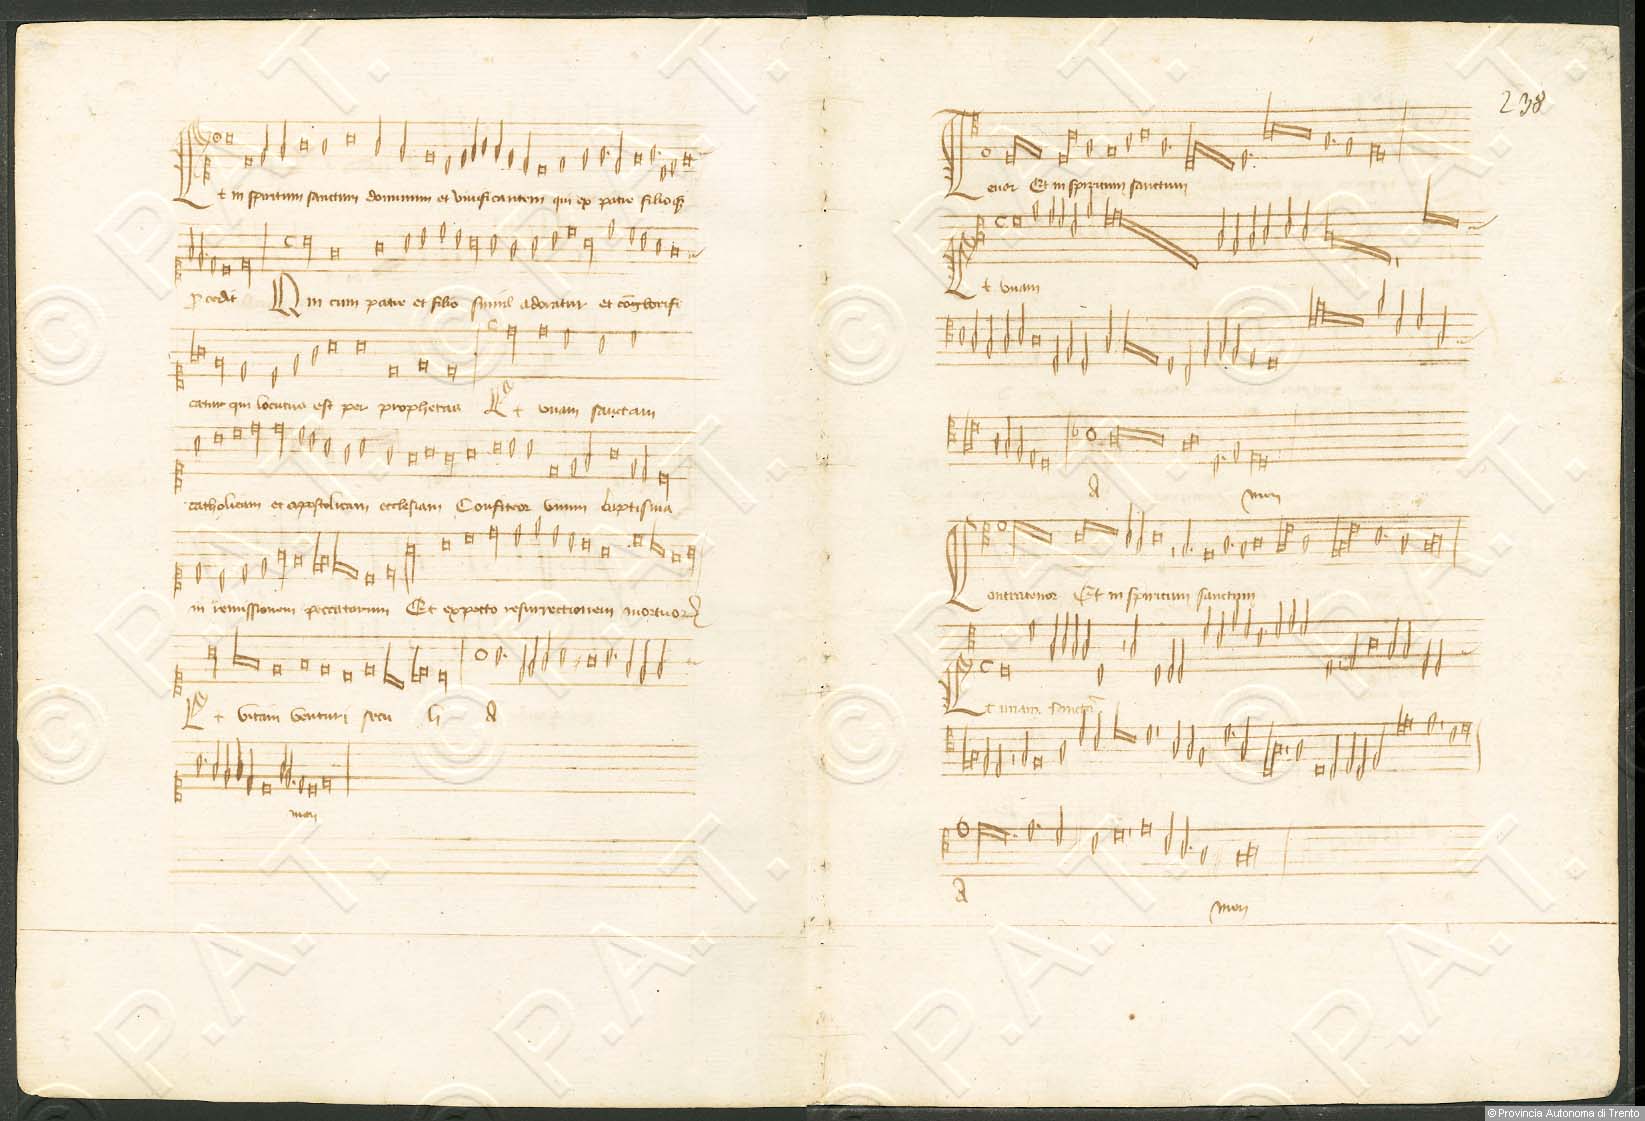 Et in spiritum sanctum dominum et vivificantem qui ex patre filioqȝ
procedit Qui cum patre et filio simul adoratur et cōglorifi
catur qui locutus est per prophetas Et unam sanctam
catholicam et apostolicam ecclesiam Confiteor unum baptisma
in remissionem peccatorum Et expecto resurrectionem mortuorꝝ
Et vitam venturi secu li A
men
238
Tenor Et in spiritum sanctum
Et unam
A men
Contratenor Et in spiritum sanctum
Et unam sanctā
A
men
P.A.T.
© Provincia Autonoma di Trento